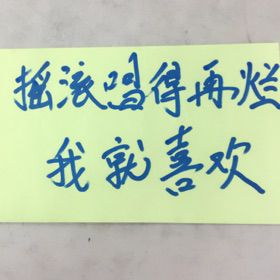 摇滚唱得再烂
我就喜欢